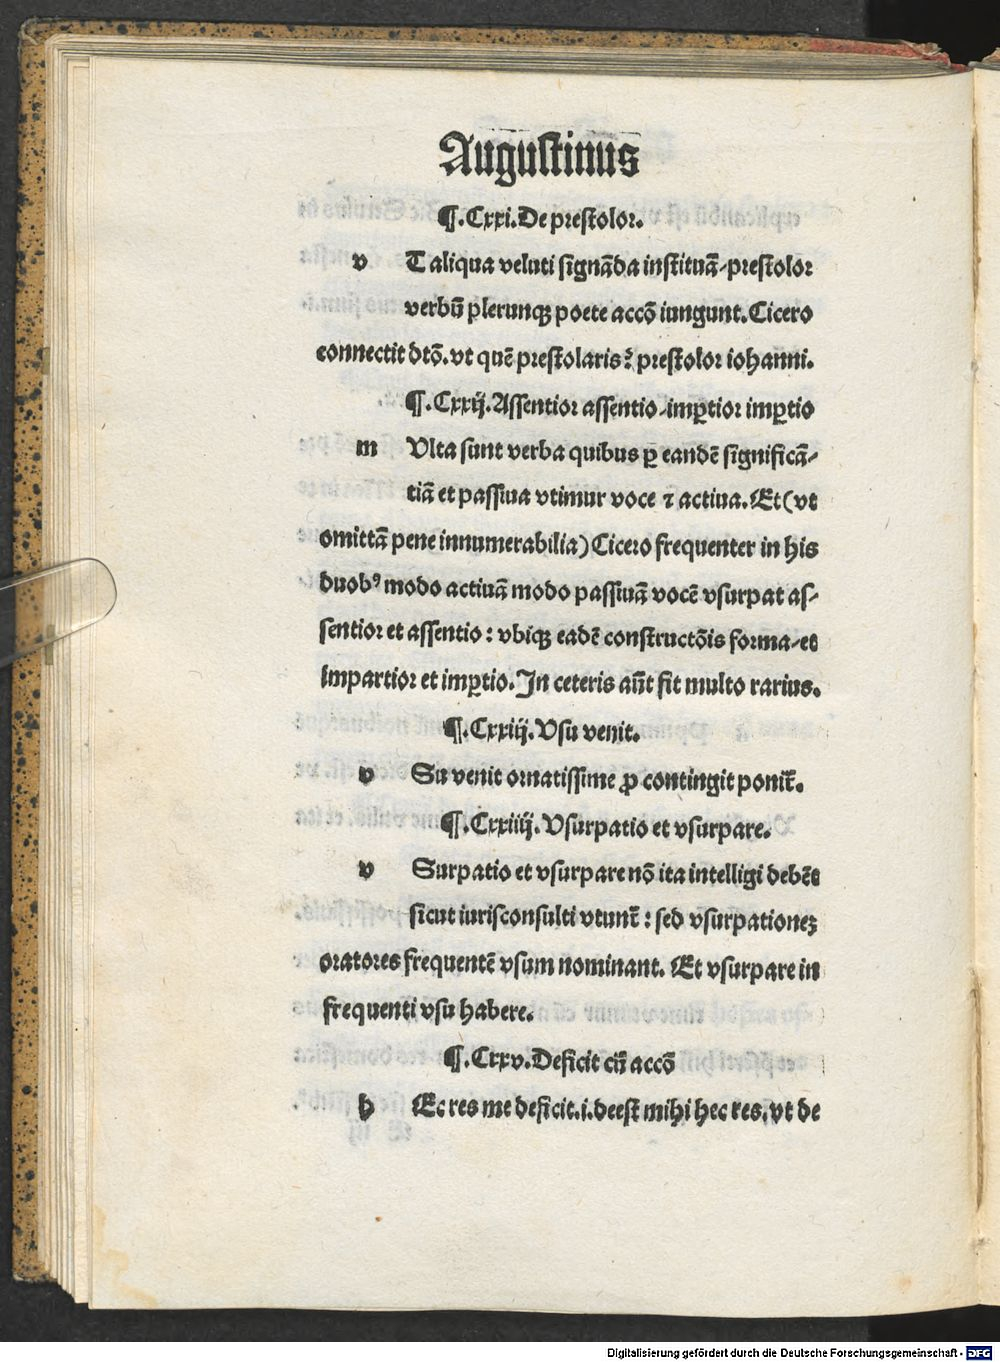 Augustinus
¶.Cxxi.De prestolor.
v T aliqua veluti signāda instituā/prestolor
verbū plerunqꝫ poete accō iungunt.Cicero
connectit dtō.vt quē prestolaris? prestolor iohanni.
¶.Cxxij.Assentior assentio/imꝑtior imꝑtio
m Vlta sunt verba quibus ꝑ eandē significā/
tiā et passiua vtimur voce ⁊ actiua.Et(vt
omittā pene innumerabilia)Cicero frequenter in his
duobꝰ modo actiuā modo passiuā vocē vsurpat as/
sentior et assentio: vbiqꝫ eadē constructōis forma/et
impartior et imꝑtio.In ceteris aūt fit multo rarius.
¶.Cxxiij.Vsu venit.
v Su venit ornatissime ꝓ contingit ponit̄.
¶.Cxxiiij.Vsurpatio et vsurpare.
v Surpatio et vsurpare nō ita intelligi debēt
sicut iurisconsulti vtunt̄: sed vsurpationeꝫ
oratores frequentē vsum nominant. Et vsurpare in
frequenti vsu habere.
¶.Cxxv.Deficit cū accō
h Ec res me deficit.i.deest mihi hec res.vt de
Digitalisierung gefördert durch die Deutsche Forschungsgemeinschaft - DFG